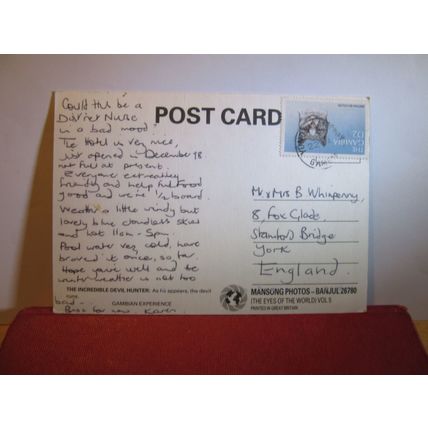 Could this be a
District Nurse
in a bad mood?
The Hotel is very nice,
just opened in December 98
not full at present.
Everyone extremely
friendly and help full food
good and we're ½ board.
Weather a little windy but
lovely blue cloudless skies
and hot 11am - 5pm.
Pool water very cold, have
braved it once, so far.
Hope you're well and the
weather is not too
bad -
Bye for now. Karen
THE INCREDIBLE DEVIL HUNTER: As he appears, the devil
runs.
GAMBIAN EXPERIENCE
POST CARD
THE
GAMBIA
D2
Mr + Mrs B Whimpenny,
8, Fox Glade,
Stamford Bridge
York
England.
MANSONG PHOTOS – BANJUL/26780
(THE EYES OF THE WORLD) VOL 5
PRINTED IN GREAT BRITAIN